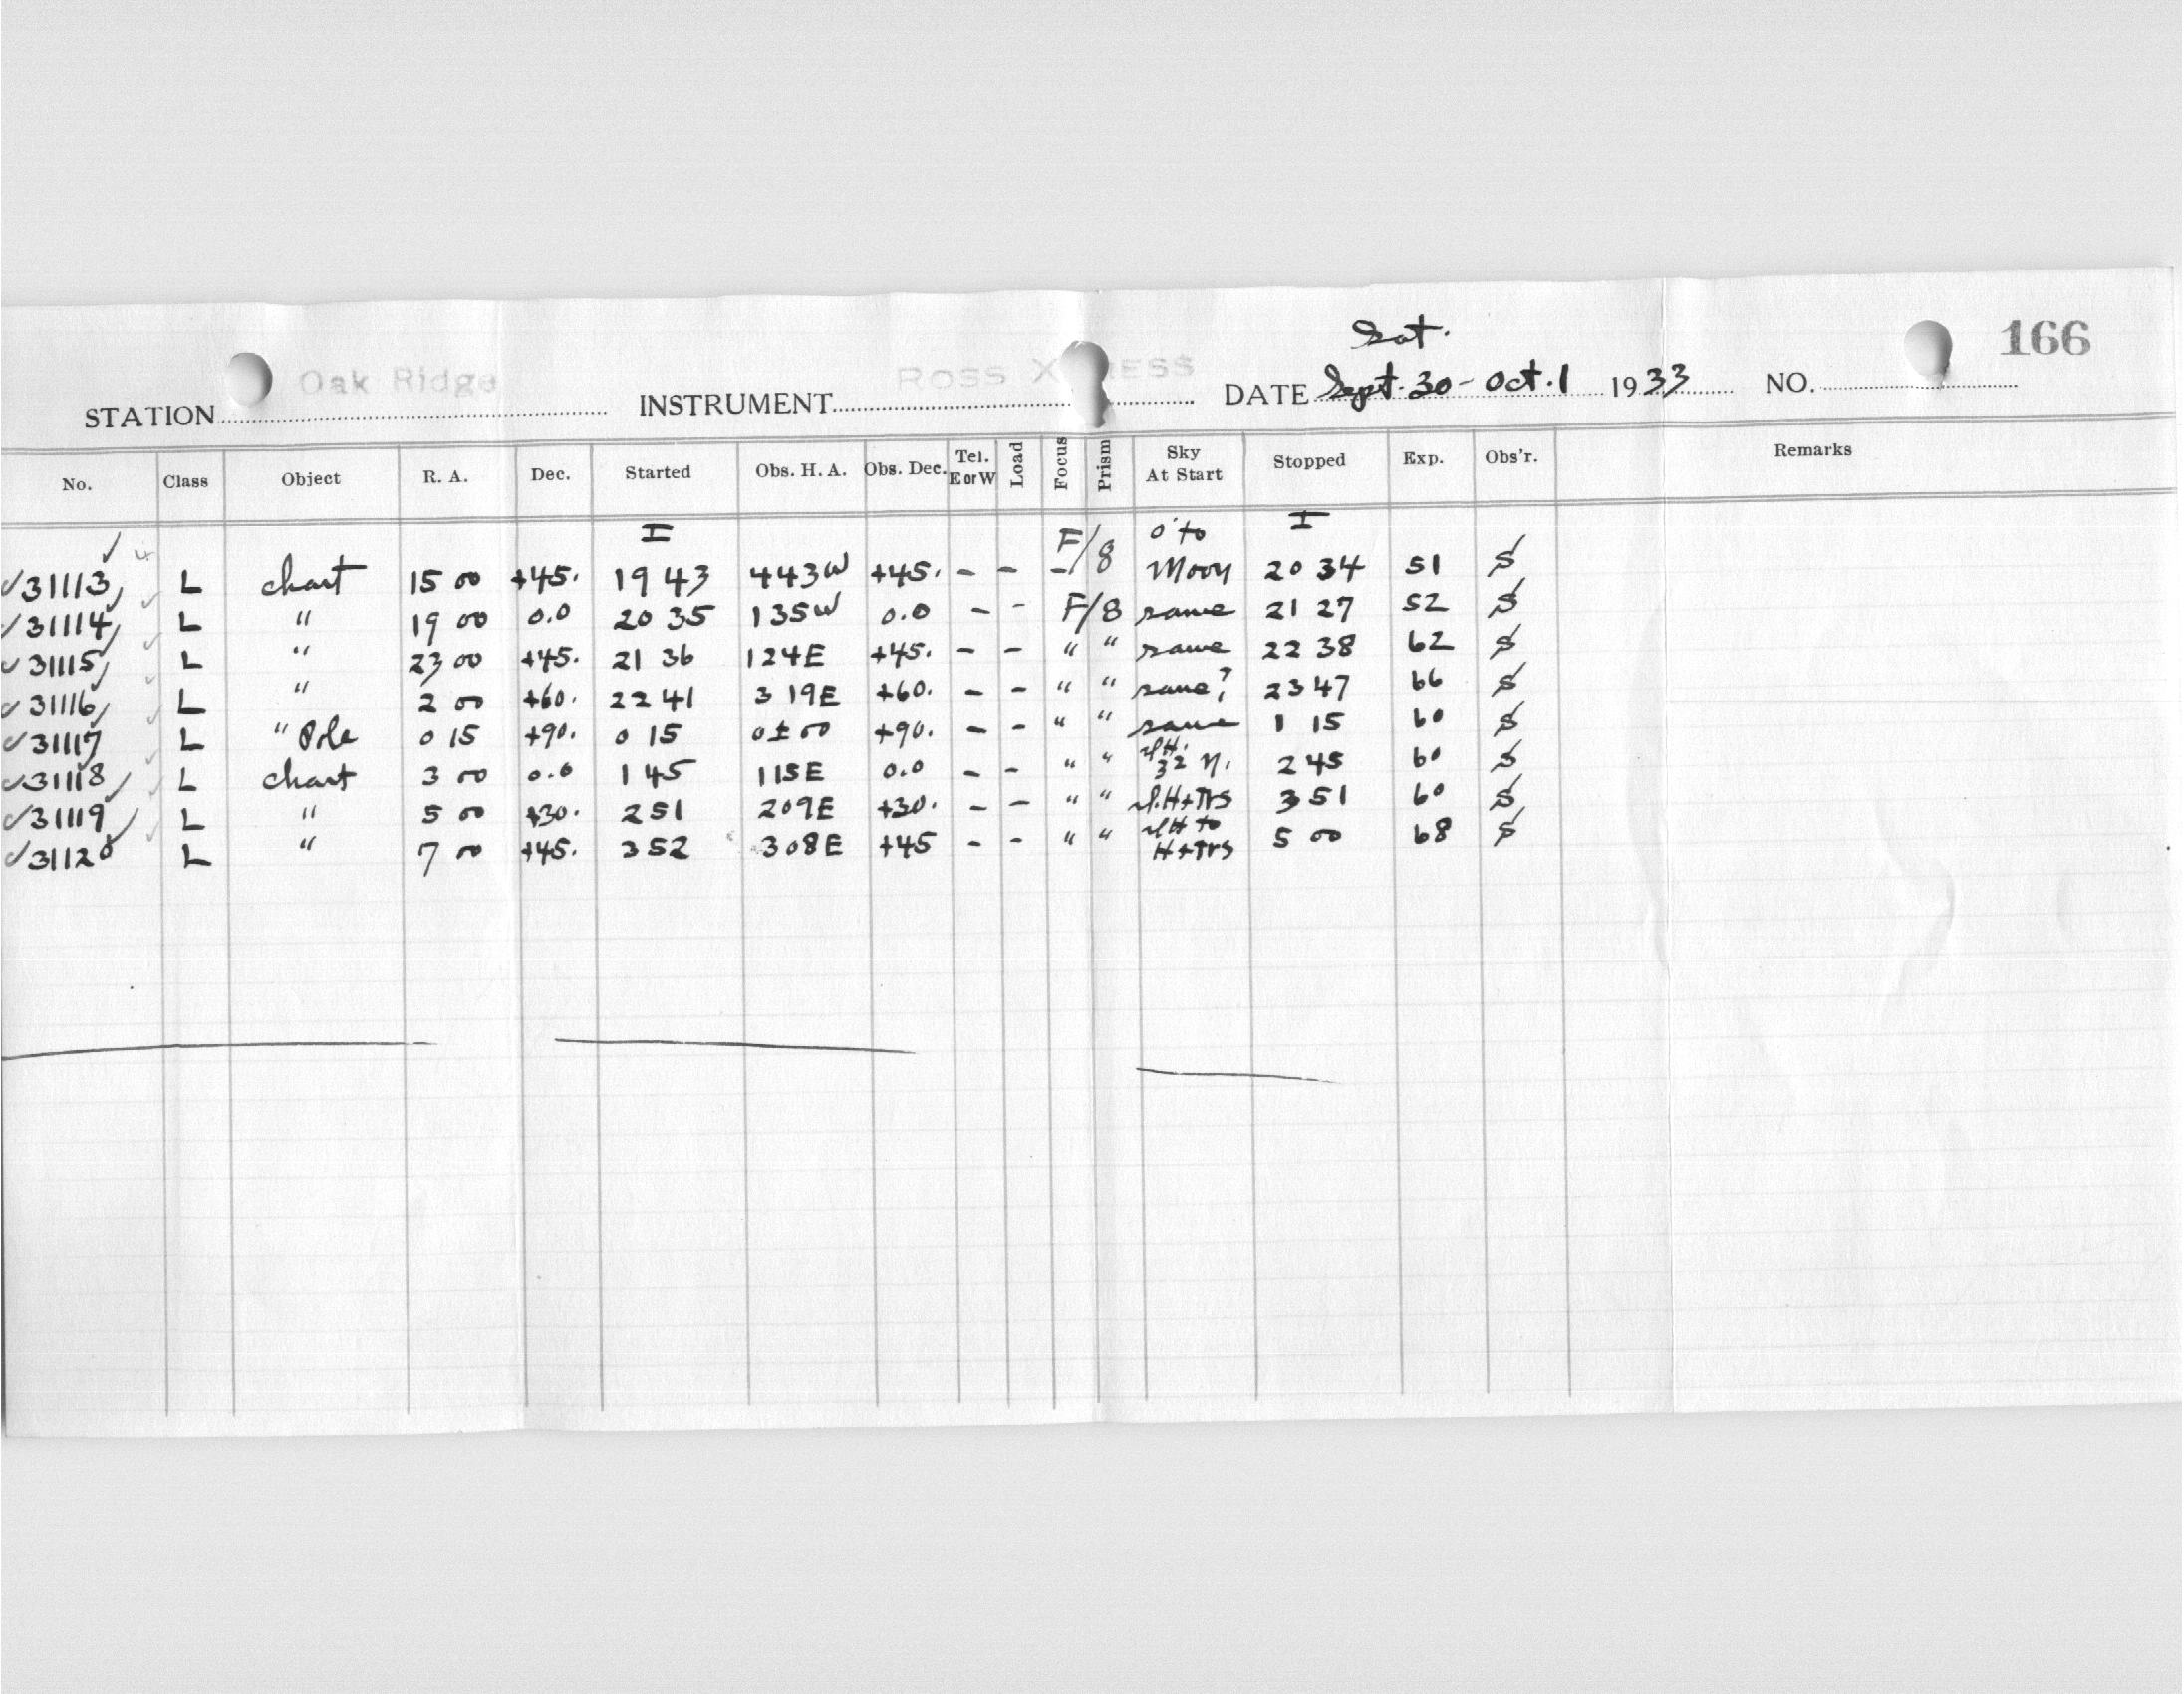 166
Sat.
STATION Oak Ridge INSTRUMENT ROSS X DATE Sept. 30 - Oct. 1 1933 NO.
No. Class Object R. A. Dec. Started Obs. H. A. Obs. Dec. Tel. E or W Load Focus Prism Sky At Start Stopped Exp. Obs'r. Remarks
I F/8 o to I
31113 L chart 15 00 +45. 19 43 4 43W +45. - - - Moon 20 34 51 S
31114 L " 19 00 0.0 20 35 1 35W 0.0 - - F/8 same 21 27 52 S
31115 L " 23 00 +45. 21 36 1 24E +45. - - " " same 22 38 62 S
31116 L " 2 00 +60. 22 41 3 19E +60. - - " " same? 23 47 66 S
31117 L " Pole 0 15 +90. 0 15 0±00 +90. - - " " same 1 15 60 S
31118 L chart 3 00 0.0 1 45 115E 0.0 - - " " 32 N. 2 45 60 S
31119 L " 5 00 +30. 2 51 209E +30. - - " " H+Trs 3 51 60 S
31120 L " 7 00 +45. 3 52 308E +45 - - " " H to H+Trs 5 00 68 S